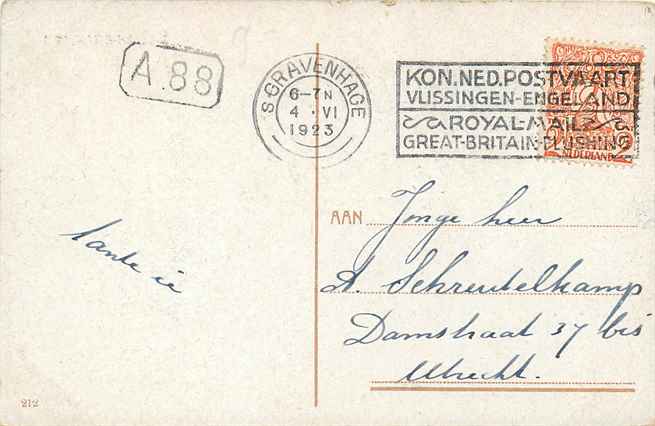 A.88
'S GRAVENHAGE
6-7N
4 · VI
1923
KON. NED. POSTVAART
VLISSINGEN-ENGELAND
ROYAL-MAIL
GREAT-BRITAIN-FLUSHING
NEDERLAND
AAN Jonge heer
A. Schreutelkamp
Damstraat 37 bis
Utrecht.
tante
212